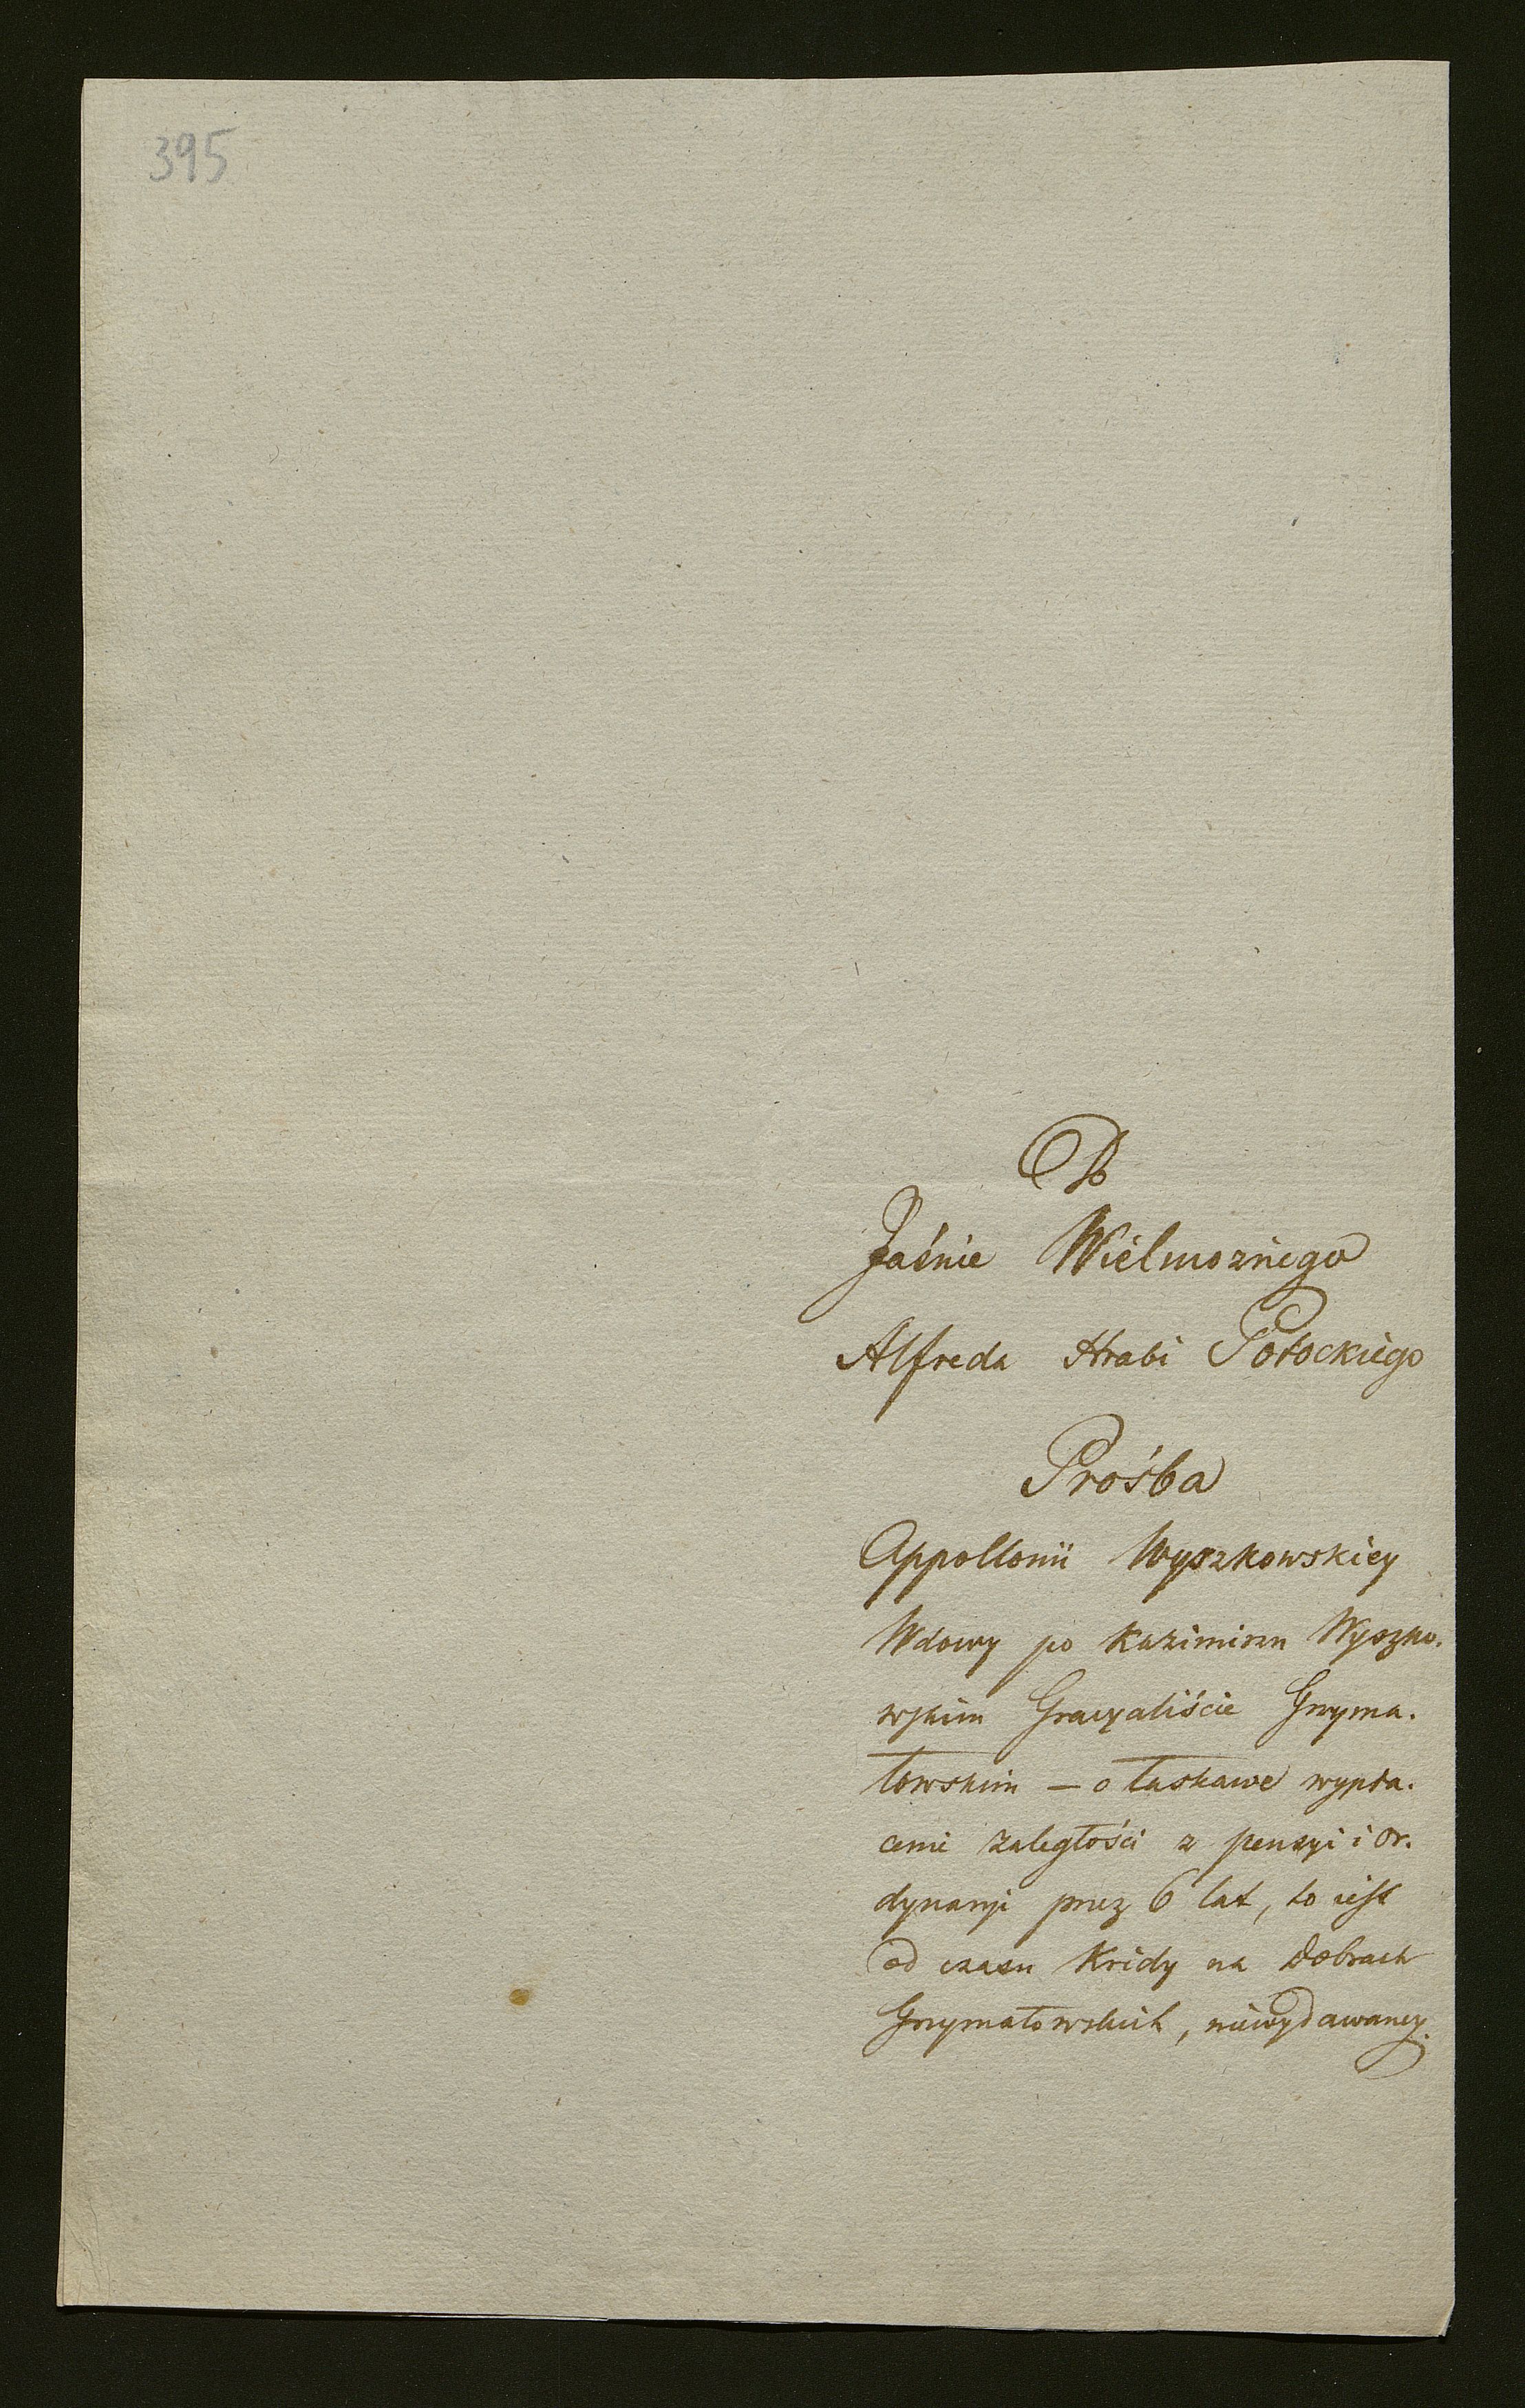 395
Do
Jaśnie Wielmożnego
Alfreda Hrabi Potockiego
Prośba
Appollonii Wyszkowskiey
Wdowy po Kazimirzu Wyszko.
wskim Gracyaliście Grzyma.
łowskim – o łaskawe wypła.
cenie zaległości z pensyi i or.
dynaryi przez 6 lat, to iest
od czasu Kridy na Dobrach
Grzymałowskich, niewydawaney.